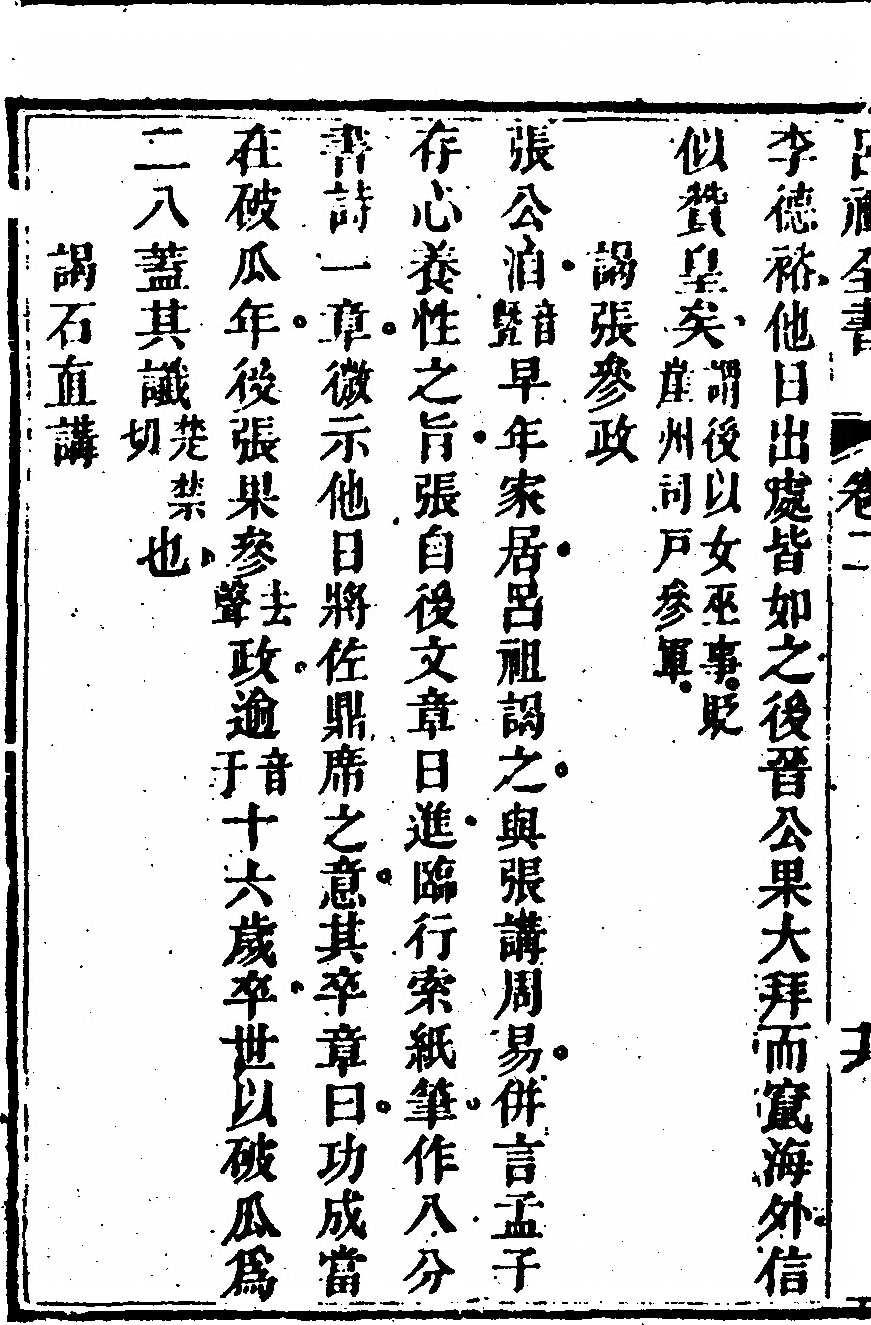 呂祖全書 卷二
李德裕他日出處皆如之後晉公果大拜而竄海外信
似贊皇矣謂後以女巫事貶崖州司戶參軍
謁張參政
張公洎音曁早年家居呂祖謁之與張講周易併言孟子
存心養性之旨張自後文章日進臨行索紙筆作八分
書詩一章微示他日將佐鼎席之意其卒章曰功成當
在破瓜年後張果參去聲政逾音于十六歲卒世以破瓜爲
二八蓋其讖楚禁切也
謁石直講